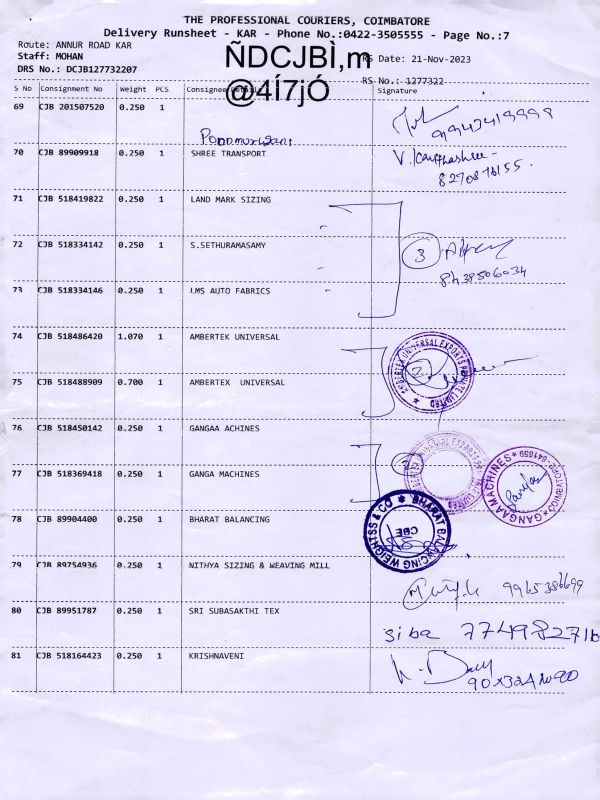 THE PROFESSIONAL COURIERS, COIMBATORE
Delivery Runsheet - KAR - Phone No.:0422-3505555 - Page No.:7
Route: ANNUR ROAD KAR
Staff: MOHAN
DRS No.: DCJB127732207
ÑDCJBÌ,m
@4Í7jÓ
RS Date: 21-Nov-2023
RS No.: 1277322
S No Consignment No Weight PCS Consignee Details Signature
69 CJB 201507520 0.250 1
70 CJB 89909918 0.250 1 SHREE TRANSPORT
71 CJB 518419822 0.250 1 LAND MARK SIZING
72 CJB 518334142 0.250 1 S.SETHURAMASAMY
3
8438506034
73 CJB 518334146 0.250 1 LMS AUTO FABRICS
74 CJB 518486420 1.070 1 AMBERTEK UNIVERSAL
2
75 CJB 518488909 0.700 1 AMBERTEX UNIVERSAL
76 CJB 518450142 0.250 1 GANGAA ACHINES
77 CJB 518369418 0.250 1 GANGA MACHINES
GANGAA MACHINES
78 CJB 89904400 0.250 1 BHARAT BALANCING
BHARAT BALANCING WEIGHTSS & CO
CBE
79 CJB 89754936 0.250 1 NITHYA SIZING & WEAVING MILL
80 CJB 89951787 0.250 1 SRI SUBASAKTHI TEX
siba
81 CJB 518164423 0.250 1 KRISHNAVENI